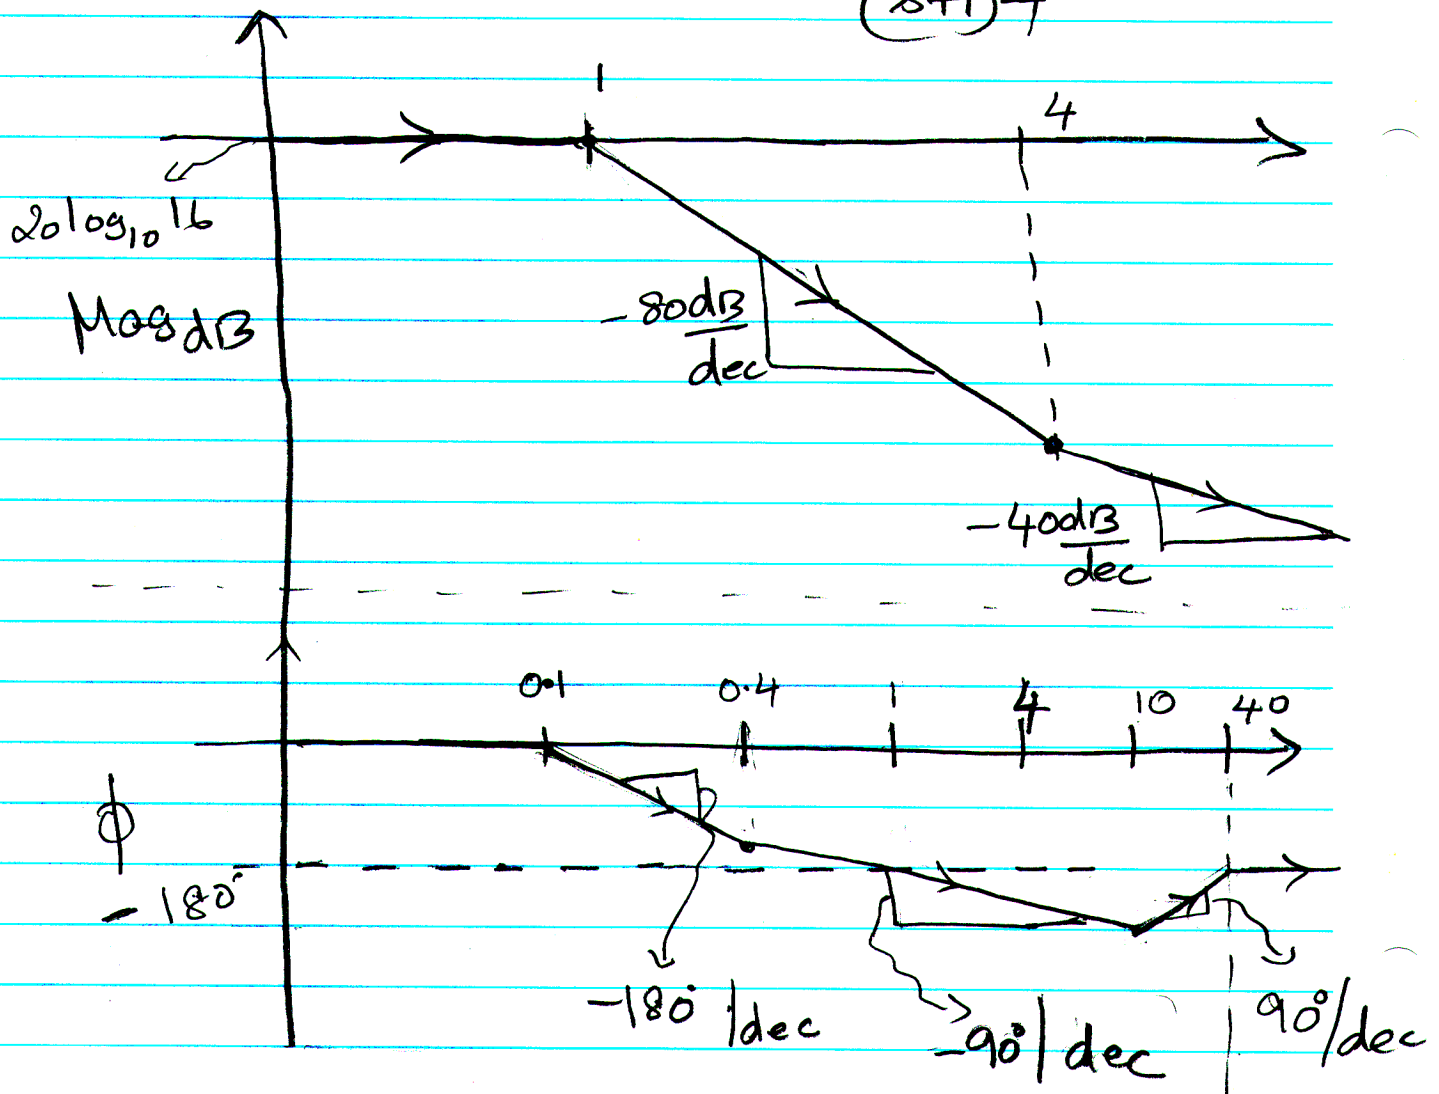 (s+1)4
1
4
20log₁₀16
Mag dB
-80dB
dec
-40dB
dec
0.1 0.4 1 4 10 40
ϕ
-180°
-180°/dec
-90°/dec
90°/dec